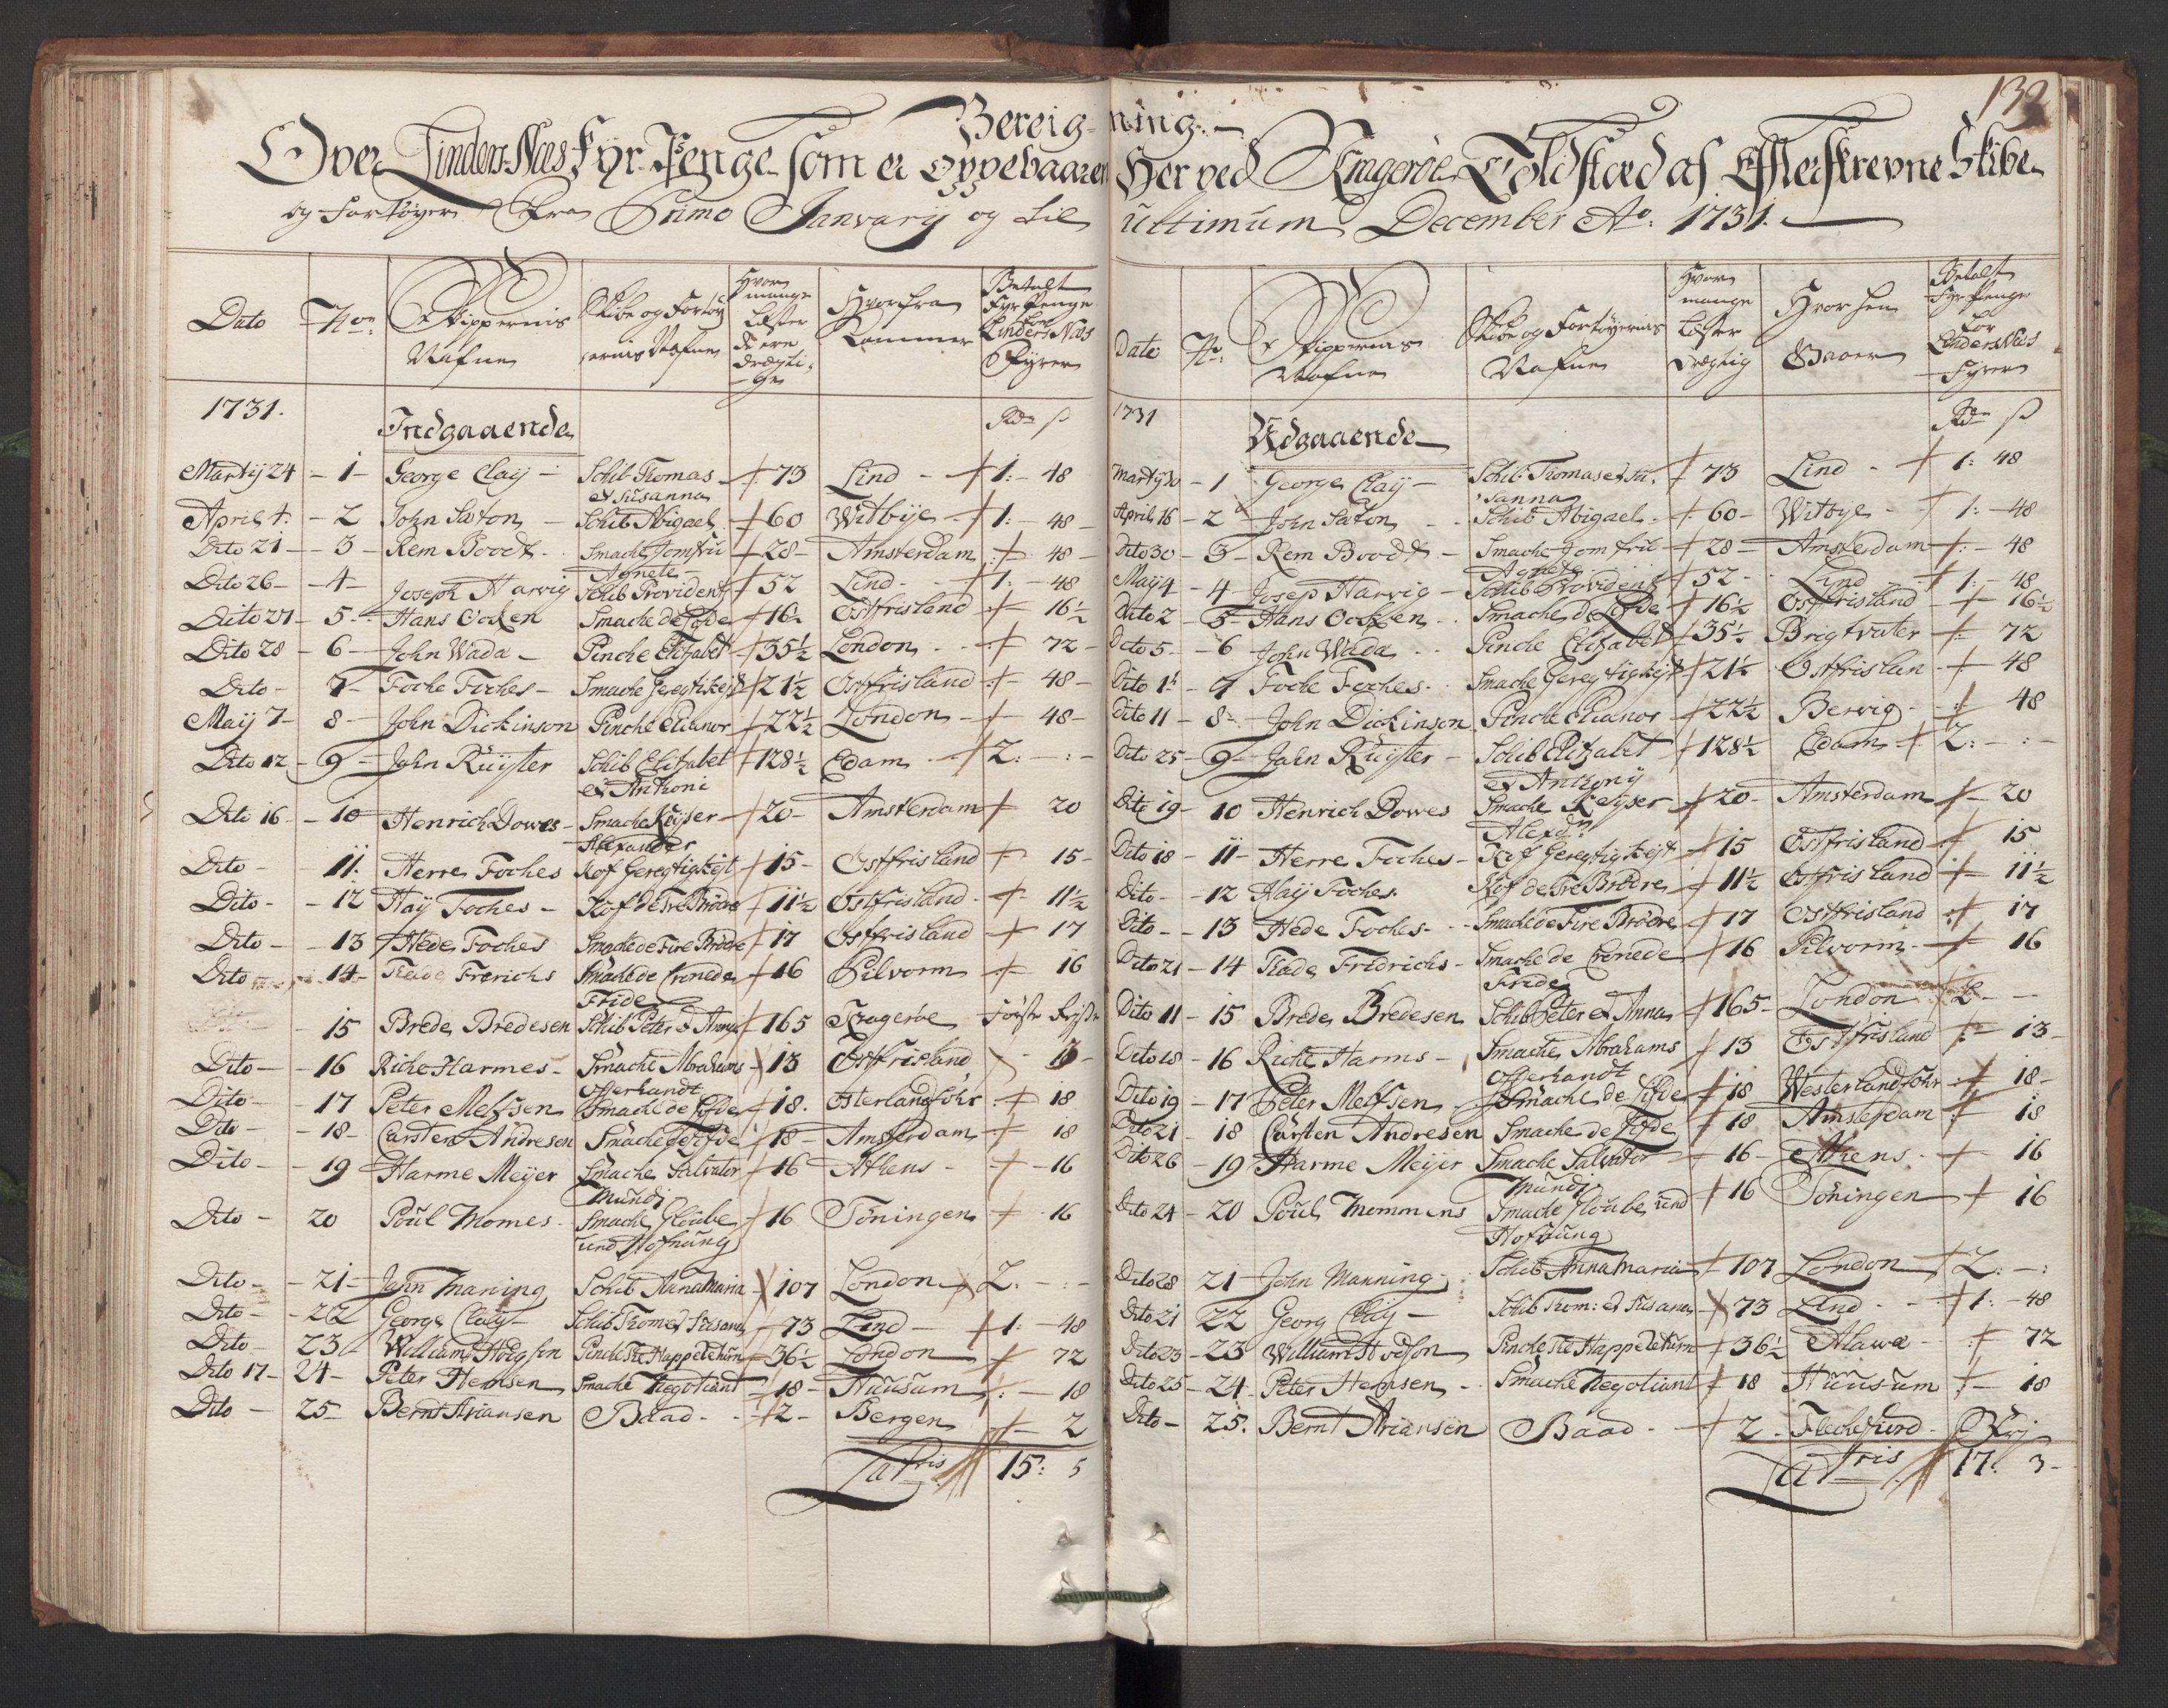 132
Bereig- ning.
Over Linders Næs Fyr-Penge som er oppebaaren Her ved Kragerøe Toldstæd af Efterskrevne Skibe
og Fartøyer Fra Primo Janvarij og til ultimum December Ao: 1731.
Dato No: Skippernis Nafne Skibe og Fartøyernis Nafne Hvor mange Læster de ere drægtige Hvorfra Kommer Betalt Fyr Penge for Linders Næs Fyrer
1731. Indgaaende Rdr ß
Martij 24 - 1 - George Claij - Schib Thomas et Susanna 73 Lind - 1: - 48
April 1: - 2 John Saton - Schib Abigael 60 Witbije - 1: - 48 -
Dito 21 - - 3 - Rem Boodt - Smache Jomfru Agnete - 28 - Amsterdam 48 -
Dito 26 - - 4 - Joseph Harvig Schib Provident 52 Lind - 1: - 48
Dito 27 - 5 - Hans Ocken Smache de Lifde 16½ Ostfrisland 16½
Dito 28 - 6 - John Wada - Pinche Elizabet 35½ London 72 -
Dito - 7 - Foche Foches - Smache Geregtigkejt 21½ Ostfrisland 48 -
Maij 7 - 8 - John Dickinson Pinche Elianor 22½ London - 48 -
Dito 12 - 9 - Jahn Ruijster Schib Elizabet et Anthoni 128½ Edam 2: - : -
Dito 16 - - 10 Henrich Dowes - Smache Keyser Alexander 20 - Amsterdam 20
Dito - 11: Herre Foches Kof Geregtigkejt 15 - Ostfrisland 15 -
Dito - - 12 Haij Foches - Kof de Tre Brødre 11½ Ostfrisland 11½
Dito - - 13 Hede Foches Smache de Fire Brødre 17 Ostfrisland 17
Dito 14 - Frerichs Smache de Cronede Fride 16 Pilvorm 16
15 Brede Bredesen Schib Peter et Anna 165 Kragerøe første Rejse
Dito - - 16 Riche Harmes - Smache Abrahams offerhandt 13 Ostfrisland 13 -
Dito - - 17 Peter Melfsen Smache de Lifde 18. Osterlandføhr 18
Dito - - 18 - Carsten Andresen Smache de Lifde 18 - Amsterdam 18
Dito - - 19 Harme Meijer Smache Salvator Mundi 16 Athens - - 16
Dito - 20 Poul Momes - Smache Gloube und Hofnung 16 Töningen 16
Dito - - 21 - Jahn Maning Schib Anna Maria 107 London 2. - : -
Dito - - 22 George Claij - Schib Thom et Susana 73 Lind - 1: - 48
Dito - 23 William Hodgson Pinche The Happe Return 36½ London 72
Dito 17 - 24 - Peter Hemsen Smache Negotiant 18 - Huusum : - 18
Dito - 25 - Bernt Ariansen Baad - 2 - Bergen 2
Latris 15: 5
Dato No: Skippernis Nafne Skibe og Fartøyernis Nafne Hvor mange Læster Drægtig Hvor hen Gaaer Betalt Fyr Penge for Linders Næs Fyrer
1731 Udgaaende Rdr ß
Martij 30 - 1 George Claij - Schib Thomas et Susanna 73 Lind - 1: 48
April 16 - 2 John Saton - Schib Abigael - 60 - Witbye - 1: - 48
Dito 30 - 3 - Rem Boodt - Smache Jomfrue Agnete 28 - Amsterdam - 48
Maij 4 - 4 - Josep Harvig - Schib Provident 52 - Lind 1: - 48
Dito 2 - 5 - Hans Ocken - Smache de Lifde 16½ Ostfrisland 16½
Dito 5 - - 6 John Wada - Pinche Elizabet 35½ Bregtvater 72
Dito 1t - 7 Foche Foches - Smache Geregtigkejt 21½ Ostfrislan 48
Dito 11 - 8 - John Dickinson Pinche Elianor 22½ Bervig - 48
Dito 25 - 9 - Jahn Ruijster - Schib Elizabet et Anthonij 128½ Edam 2: - : -
Dito 19 - 10 Henrich Dowes Smache Keyser Alexdr 20 - Amsterdam 20
Dito 18 - 11 - Herre Foches - Kof Geregtigkejt 15 Ostfrisland 15
Dito - - 12 Haij Foches - Kof de Tre Brødre 11½ Ostfrisland 11½
Dito - - 13 Hede Foches - - Smache de Fire Brödre 17 Ostfrisland 17
Dito 21 - 14 Fridrichs - Smache de Cronede Fride 16 Pilvorm - 16
Dito 11 - 15 Brede Bredesen Schib Peter et Anna 165 - London 2 - -
Dito 18 - 16 Riche Harms - Smache Abrahams offerhandt 13 Ostfrisland 13 -
Dito 19 - 17 Peter Melfsen Smache de Lifde 18 Westerlandføhr 18 -
Dito 21 - 18 Carsten Andresen Smache de Lifde 18 Amsterdam 18
Dito 26 - 19 Harme Meijer Smache Salvator Mundi 16 - Athens - 16
Dito 24 - 20 Poul Mommens Smache Gloube und Hofnung 16 Töningen 16
Dito 28 21 John Manning - Schib Anna Maria 107 London 2: - :
Dito 21 22 Georg Claij - Schib Thom: et Susana 73 Lind - - 1: - 48
Dito 23 - 23 William Hodson Pinche the Happe Return 36½ Alawa - 72
Dito 25 - 24 - Peter Hemsen - Smache Negotiant 18 Huusum - 18
Dito - 25. Bernt Ariansen Baad - 2 - Flechefiord - Frj
Latris 17: 3 -